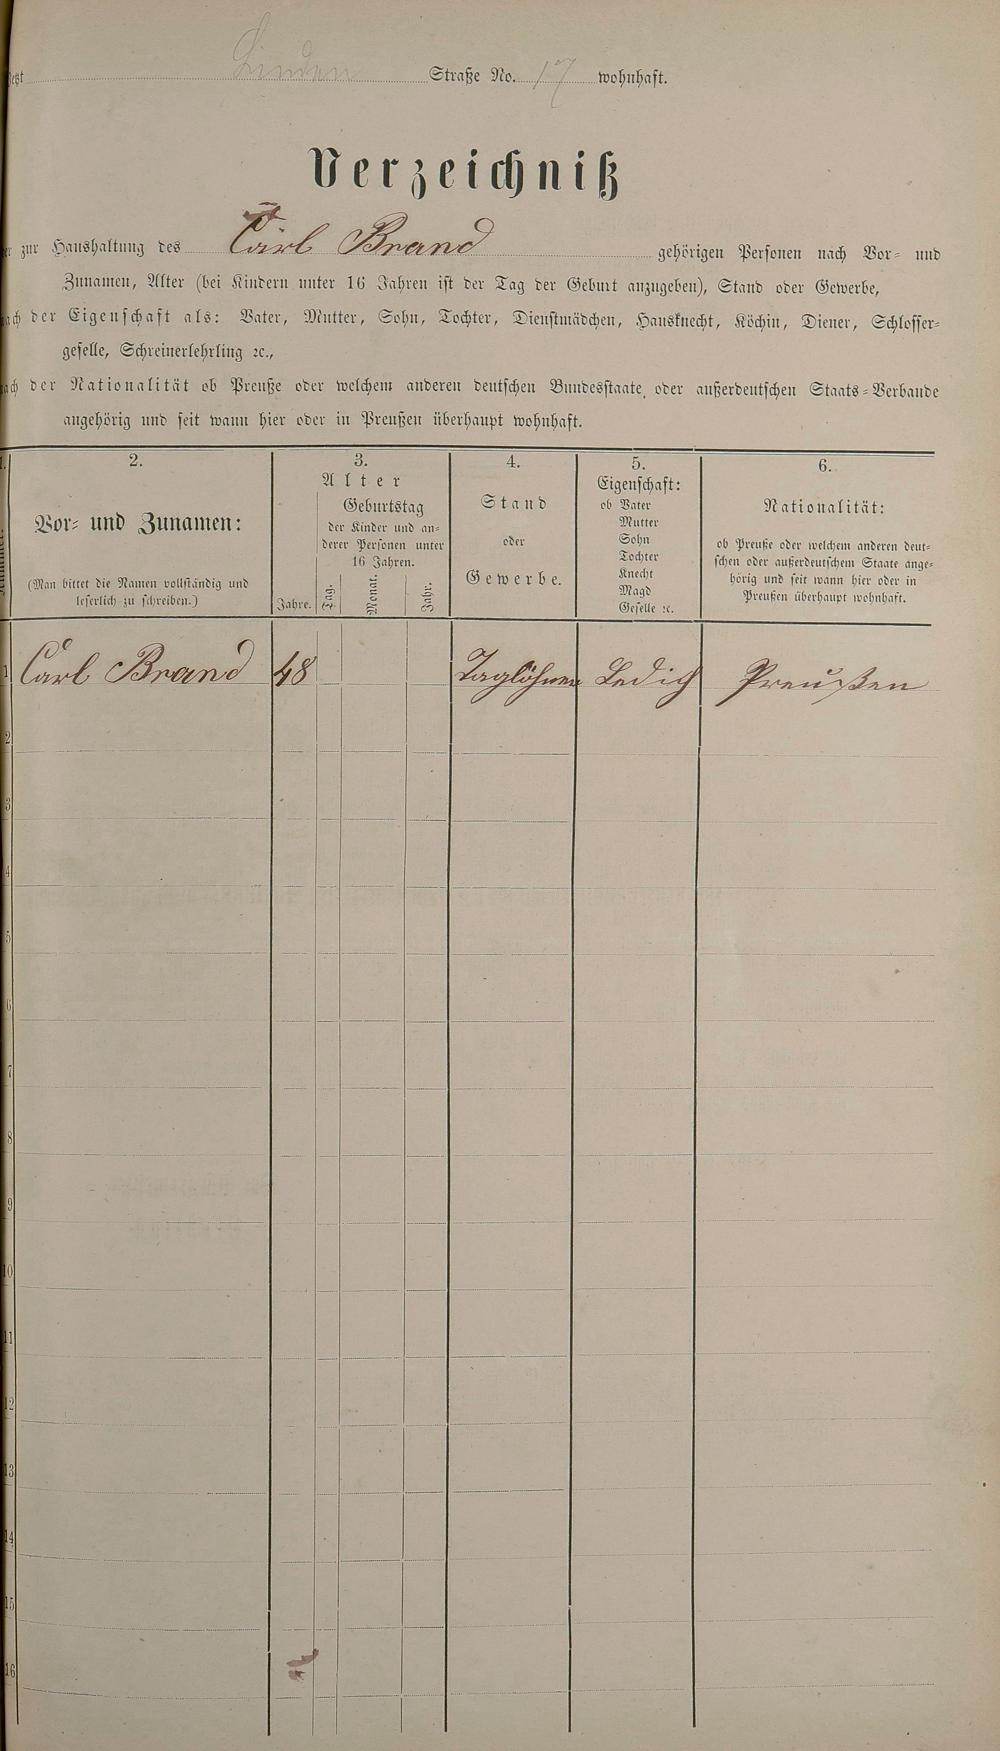 Linden Straße No. 17 wohnhaft.
Verzeichniß
zur Haushaltung des Carl Brand gehörigen Personen nach Vor- und
Zunamen, Alter (bei Kindern unter 16 Jahren ist der Tag der Geburt anzugeben), Stand oder Gewerbe,
der Eigenschaft als: Vater, Mutter, Sohn, Tochter, Dienstmädchen, Hausknecht, Köchin, Diener, Schlosser-
geselle, Schreinerlehrling ꝛc.,
der Nationalität ob Preuße oder welchem anderen deutschen Bundesstaate, oder außerdeutschen Staats-Verbande
angehörig und seit wann hier oder in Preußen überhaupt wohnhaft.
2.
Vor- und Zunamen:
(Man bittet die Namen vollständig und
leserlich zu schreiben.)
3.
Alter
Jahre.
Geburtstag
der Kinder und an-
derer Personen unter
16 Jahren.
Tag.
Monat.
Jahr.
4.
Stand
oder
Gewerbe.
5.
Eigenschaft:
ob Vater
Mutter
Sohn
Tochter
Knecht
Magd
Geselle ꝛc.
6.
Nationalität:
ob Preuße oder welchem anderen deut-
schen oder außerdeutschem Staate ange-
hörig und seit wann hier oder in
Preußen überhaupt wohnhaft.
1 Carl Brand 48 Taglöhner Ledig Preußen
2
3
4
5
6
7
8
9
10
11
12
13
14
15
16